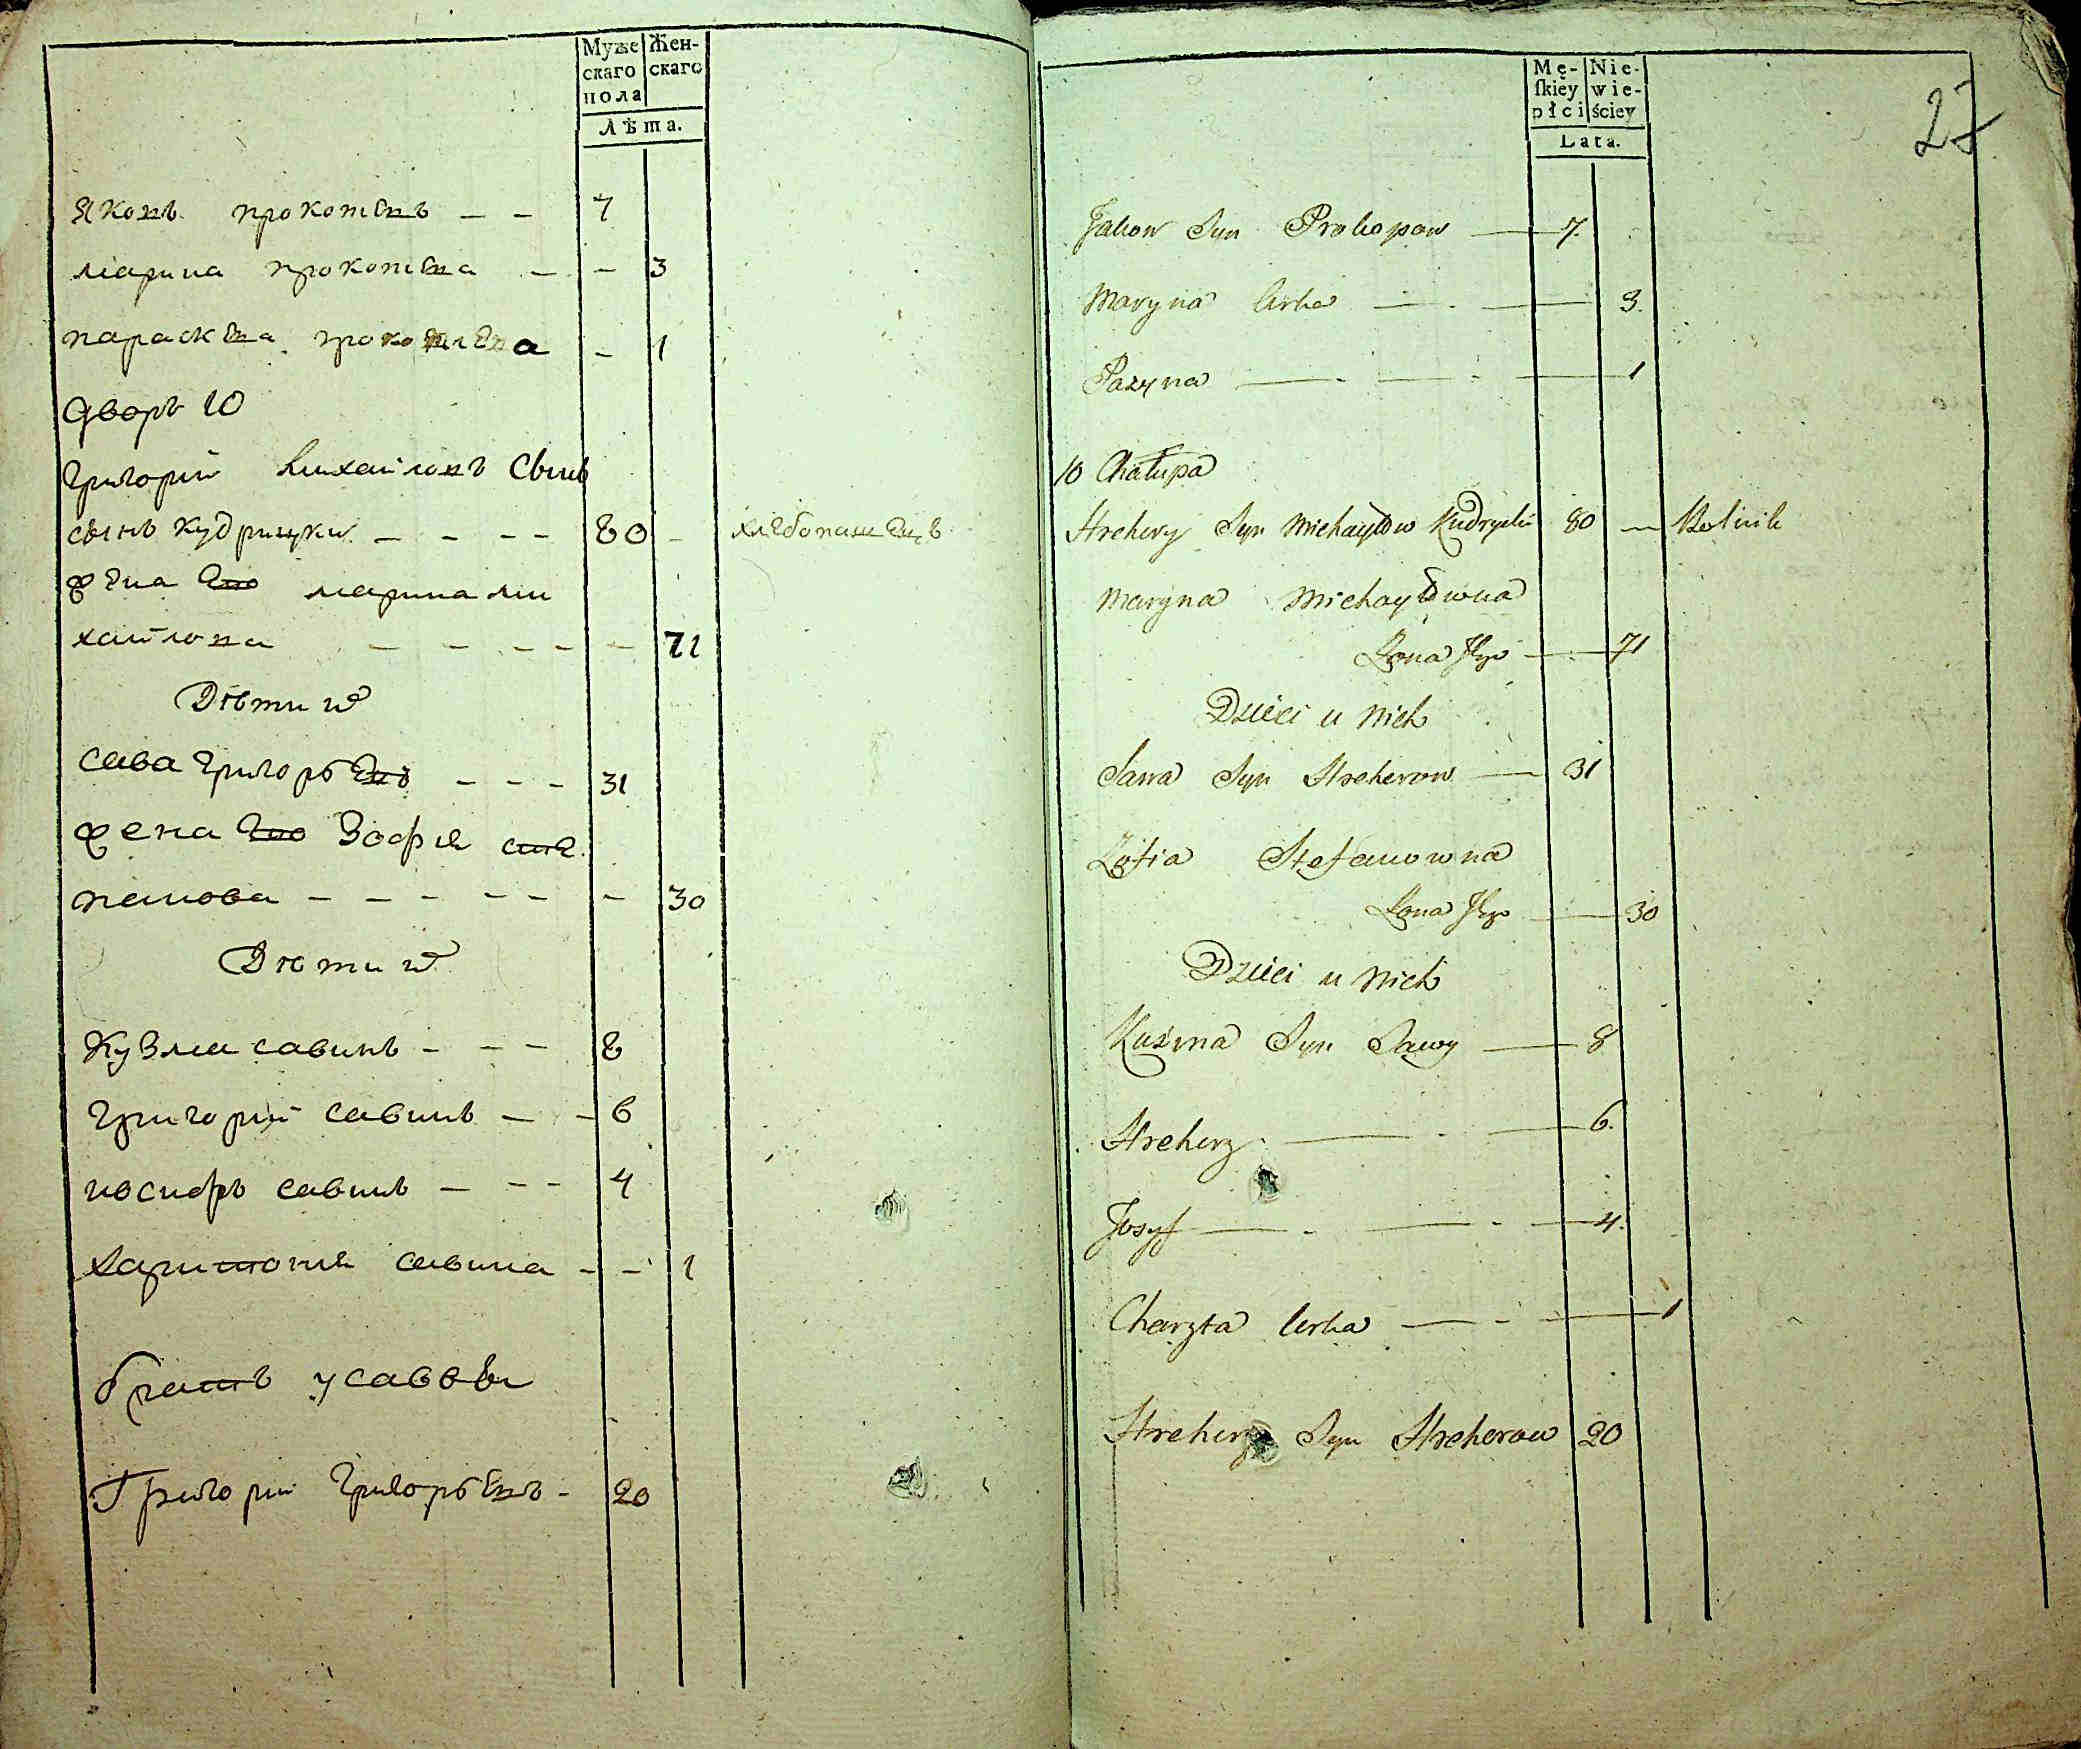 Муже Жен-
скаго скаго
пола
Лѣта.
Яковъ прокопѣвъ — — 7
марина прокопѣва — — 3
параскѣва прокопѣва — 1
Дворъ 10
Григорий Михайловъ Сынъ
сынъ кудрицки — — — — 80 — хлѣбопашецъ
жена его марина ми
хайлова — — — — — 71
Дѣти их
сава григорьевъ — — — 31
жена его Зофия сте
панова — — — — — — 30
Дѣти их
Кузма савинъ — — — 8
григорий савинъ — — 6
иосифъ савинъ — — — 4
харитония савина — — 1
братъ у саввы
Григорий григорьевъ — 20
27
Mę- Nie-
ſkiey wie-
płci ściey
Lata.
Jakow Syn Prokopow — 7.
Maryna Corka — . — 3.
Pazyna — . — . — 1
10 Chałupa
Hrehory Syn Michayłow Kudrycki 80 — Rolnik
Maryna Michayłowna
Żona Jego — . — 71
Dzieci u nich
Sawa Syn Hrehorow — 31
Zofia Stefanowna
Żona Jego — 30
Dzieci u nich
Kuźma Syn Sawy — 8
Hrehory — . — 6.
Josyf — . — . — 4.
Charyta Corka — . — 1
Hrehory Syn Hrehorow 20